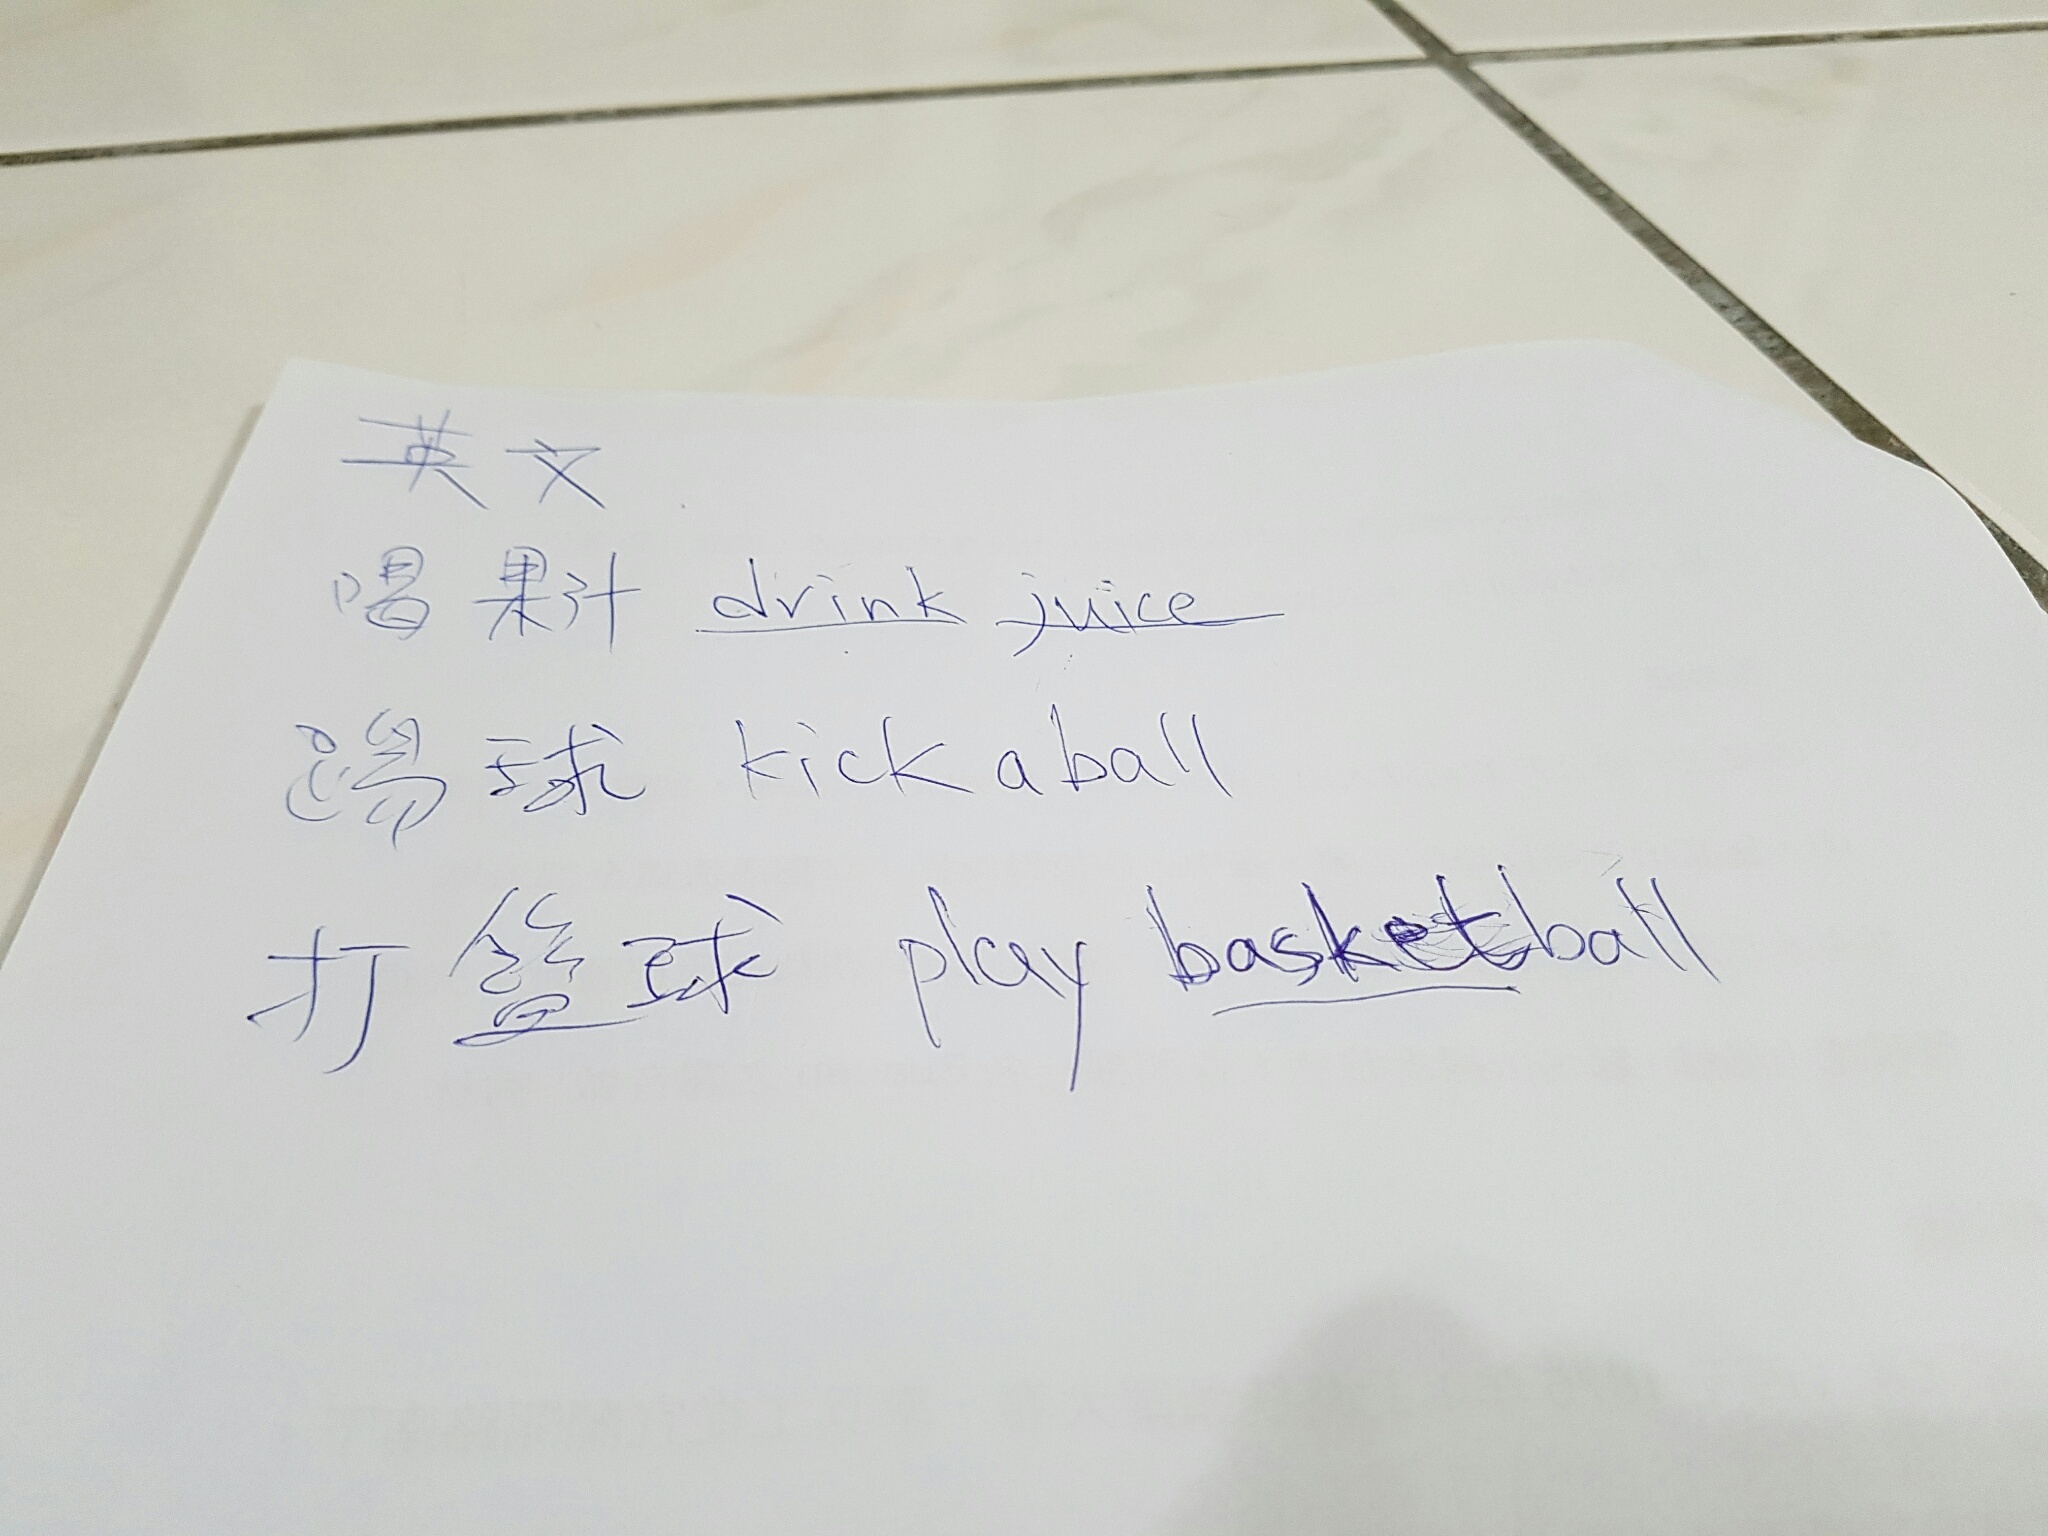 英文
喝果汁 drink juice
踢球 kick a ball
打籃球 play basketball